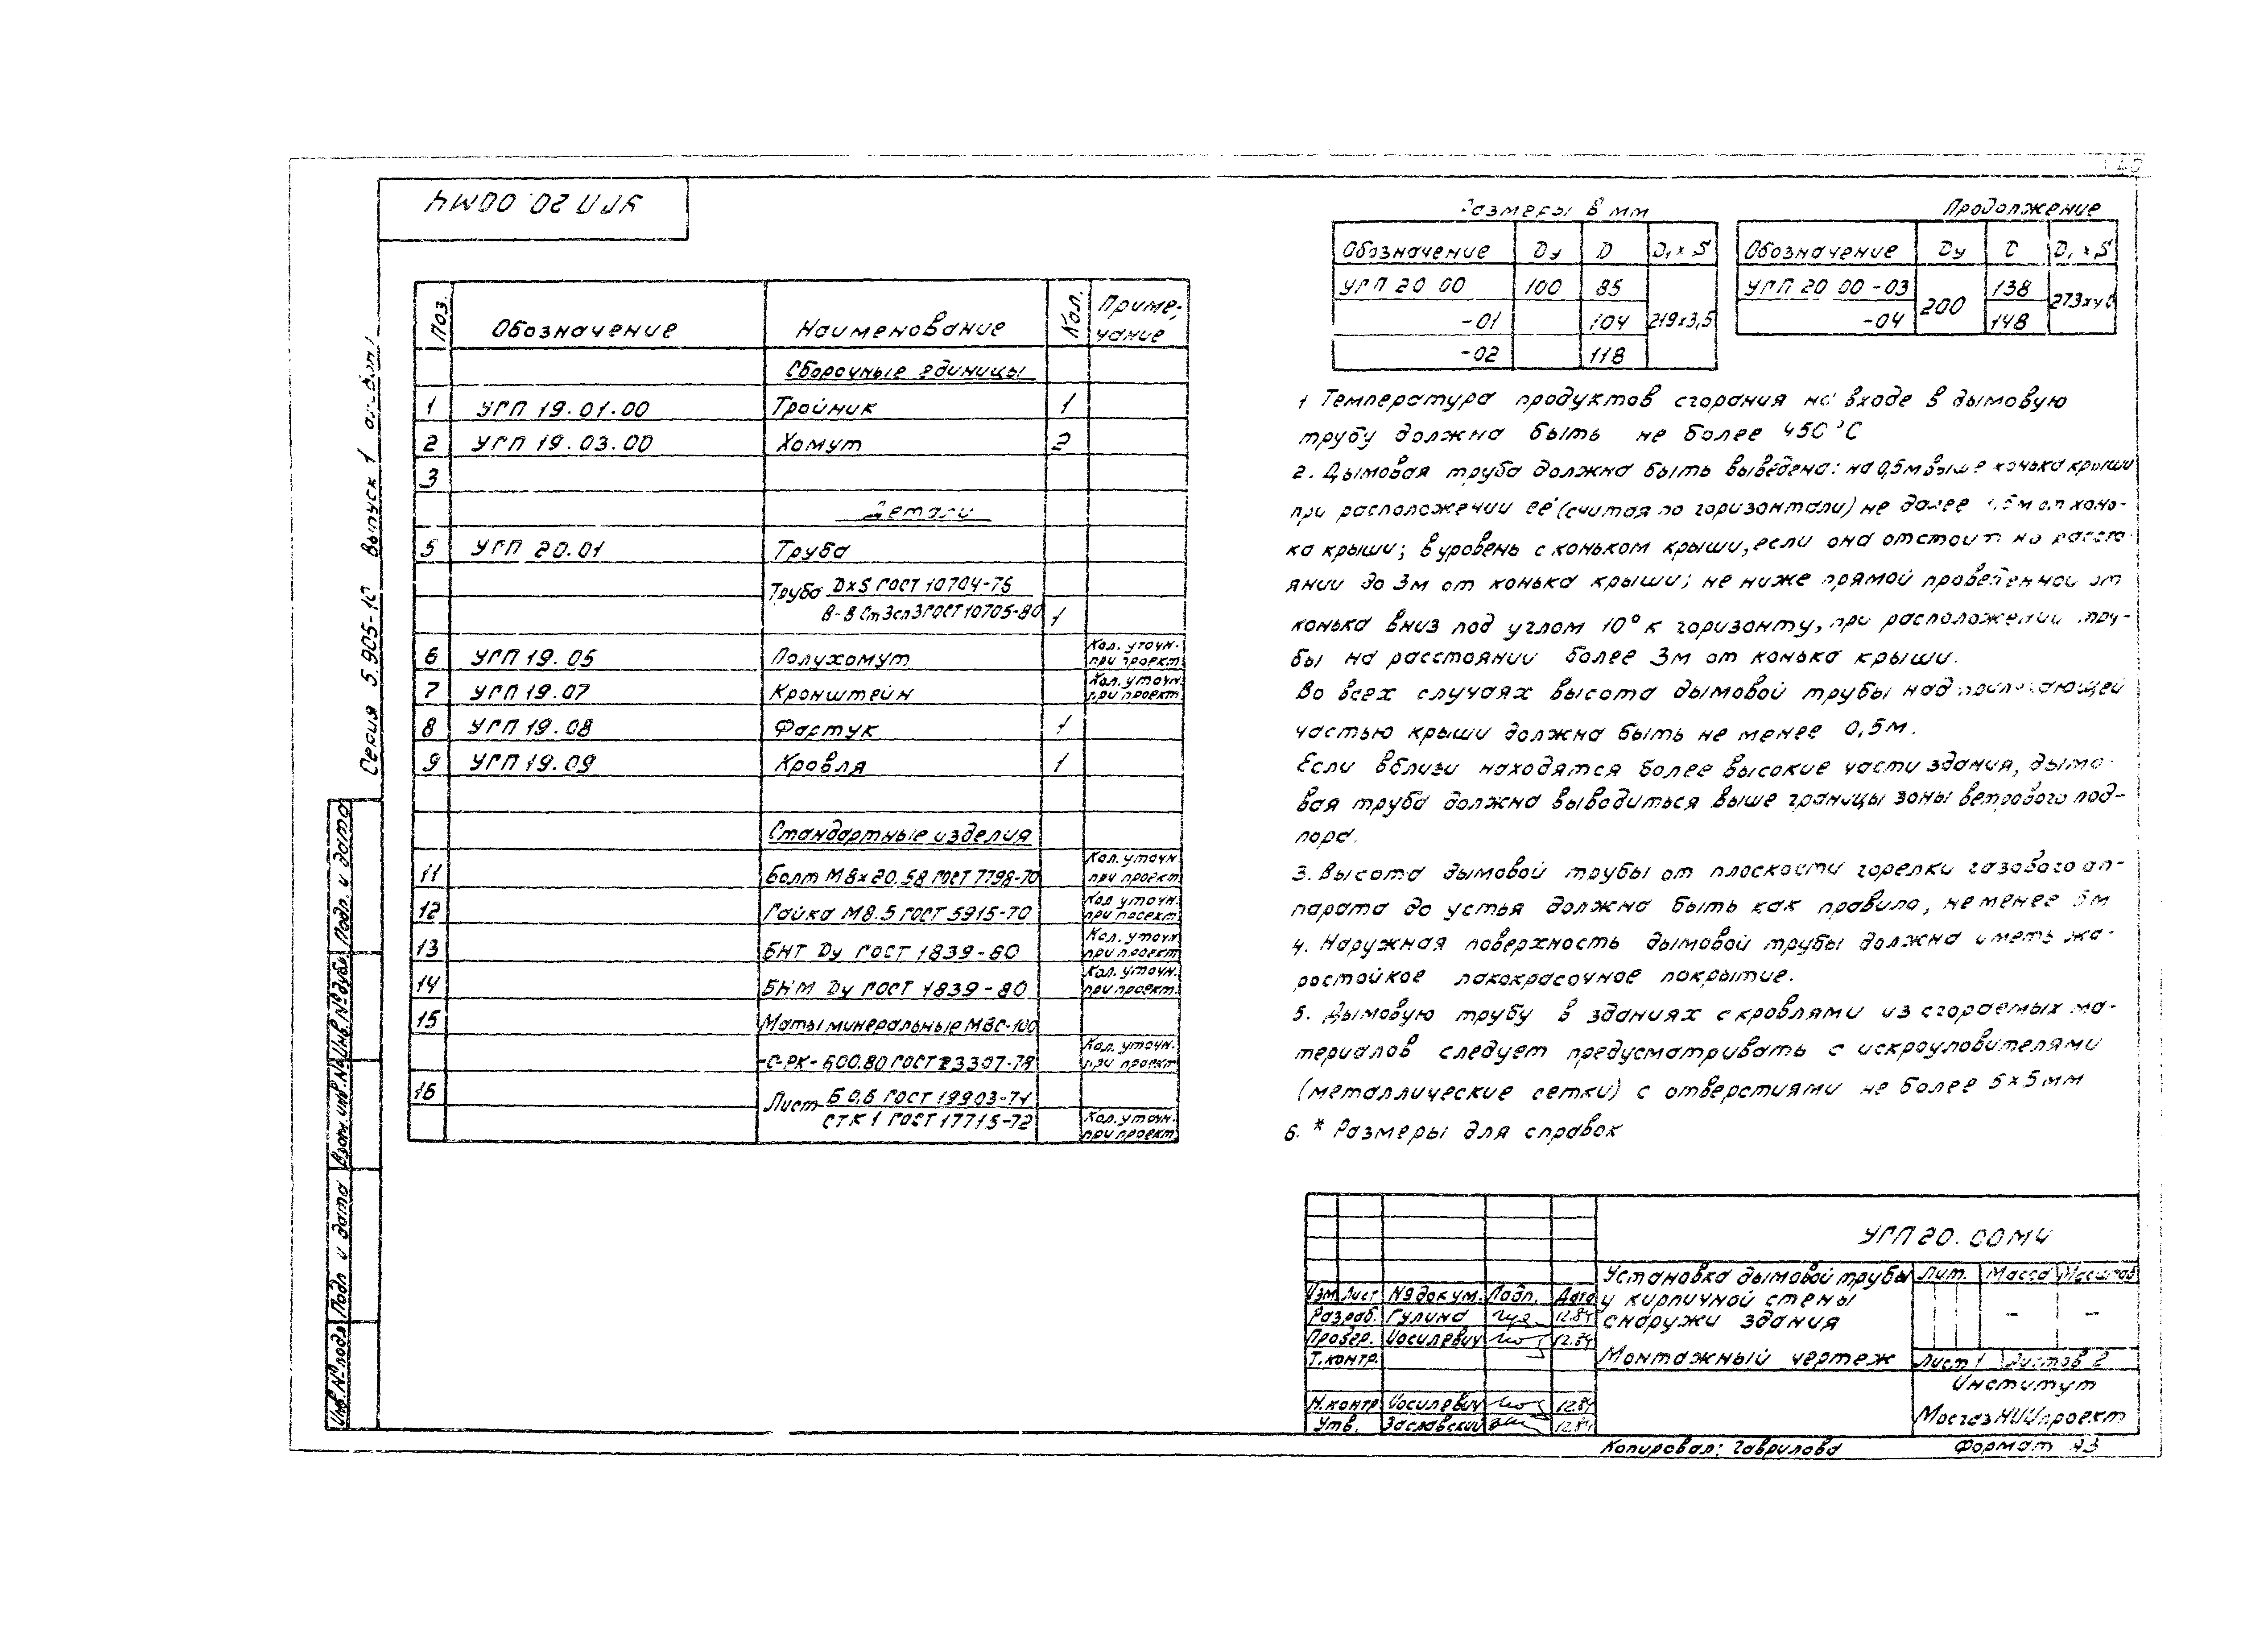 УГП 20.00МЧ
Серия 5.905-10 Выпуск 1
Поз. Обозначение Наименование Кол. Приме-
чание
Сборочные единицы
1 УГП 19.01.00 Тройник 1
2 УГП 19.03.00 Хомут 2
3
Детали
5 УГП 20.01 Труба
Труба DxS ГОСТ 10704-76
В-В Ст3сп3ГОСТ 10705-80 1
6 УГП 19.05 Полухомут Кол. уточн. при проект.
7 УГП 19.07 Кронштейн Кол. уточн. при проект.
8 УГП 19.08 Фартук 1
9 УГП 19.09 Кровля 1
Стандартные изделия
11 Болт М8х20.58 ГОСТ 7798-70 Кол. уточн. при проект.
12 Гайка М8.5 ГОСТ 5915-70 Кол. уточн. при проект.
13 БНТ Dу ГОСТ 1839-80 Кол. уточн. при проект.
14 БНМ Dу ГОСТ 1839-80 Кол. уточн. при проект.
15 Маты минеральные МВС-100
-С-РК-600.80 ГОСТ 23307-78 Кол. уточн. при проект.
16 Лист Б 0,6 ГОСТ 19903-74
СТК 1 ГОСТ 17715-72 Кол. уточн. при проект.
Размеры в мм
Обозначение Dу D D₁xS
УГП 20 00 100 85
-01 104 219х3,5
-02 118
Продолжение
Обозначение Dу D D₁xS
УГП 20 00 -03 200 138
-04 148
1 Температура продуктов сгорания на входе в дымовую
трубу должна быть не более 450°С
2. Дымовая труба должна быть выведена: на 0,5м выше конька крыши
при расположении её (считая по горизонтали) не далее 1,5м от конь-
ка крыши; в уровень с коньком крыши, если она отстоит на рассто-
янии до 3м от конька крыши; не ниже прямой проведенной от
конька вниз под углом 10° к горизонту, при расположении тру-
бы на расстоянии более 3м от конька крыши.
Во всех случаях высота дымовой трубы над прилегающей
частью крыши должна быть не менее 0,5м.
Если вблизи находятся более высокие части здания, дымо-
вая труба должна выводиться выше границы зоны ветрового под-
пора.
3. Высота дымовой трубы от плоскости горелки газового ап-
парата до устья должна быть как правило, не менее 5м
4. Наружная поверхность дымовой трубы должна иметь жа-
ростойкое лакокрасочное покрытие.
5. Дымовую трубу в зданиях с кровлями из сгораемых ма-
териалов следует предусматривать с искроуловителями
(металлические сетки) с отверстиями не более 5х5мм
6. * Размеры для справок
УГП 20.00МЧ
Установка дымовой трубы
у кирпичной стены
снаружи здания
Монтажный чертеж
Лит. Масса Масштаб
- -
Лист 1 Листов 2
Институт
МосгазНИИпроект
Изм Лист № докум. Подп. Дата
Разраб. Гулина 12.84
Провер. Иосилевич 12.84
Т.контр.
Н.контр Иосилевич 12.84
Утв. Заславский 12.84
Копировал: Гаврилова Формат А3
Инв.№подл Подп и дата Взам.инв.№ Инв.№дубл Подп. и дата